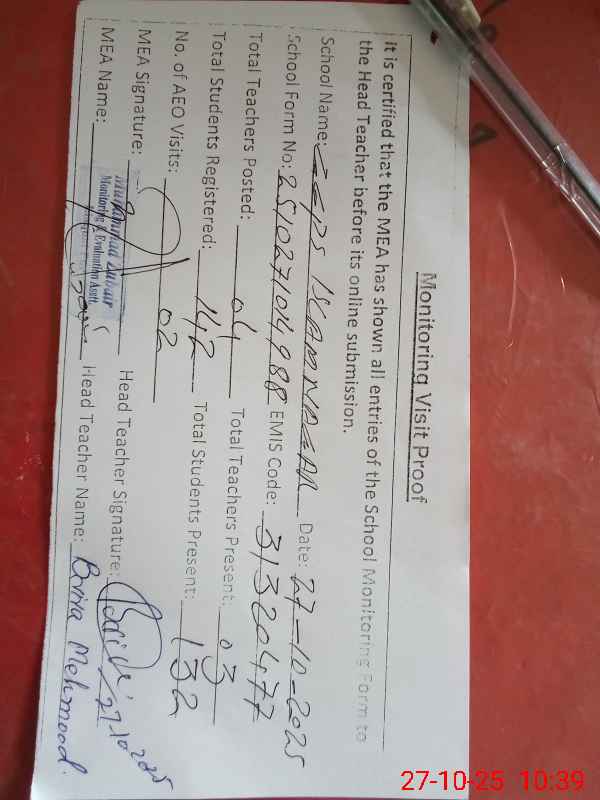 Monitoring Visit Proof
It is certified that the MEA has shown all entries of the School Monitoring Form to
the Head Teacher before its online submission.
School Name: GGPS Date: 27-10-2025
School Form No: 2510271014988 EMIS Code: 31320477
Total Teachers Posted: 04 Total Teachers Present: 03
Total Students Registered: 142 Total Students Present: 132
No. of AEO Visits: 02
MEA Signature: Head Teacher Signature: 27-10-2025
MEA Name: Muhammad Zubair Head Teacher Name: Mehmood
Monitoring & Evaluation Asstt
27-10-25 10:39